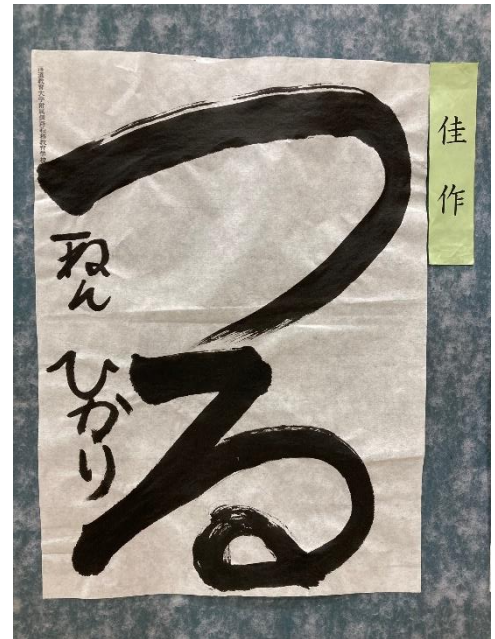 佳作
つる
一ねん ひかり